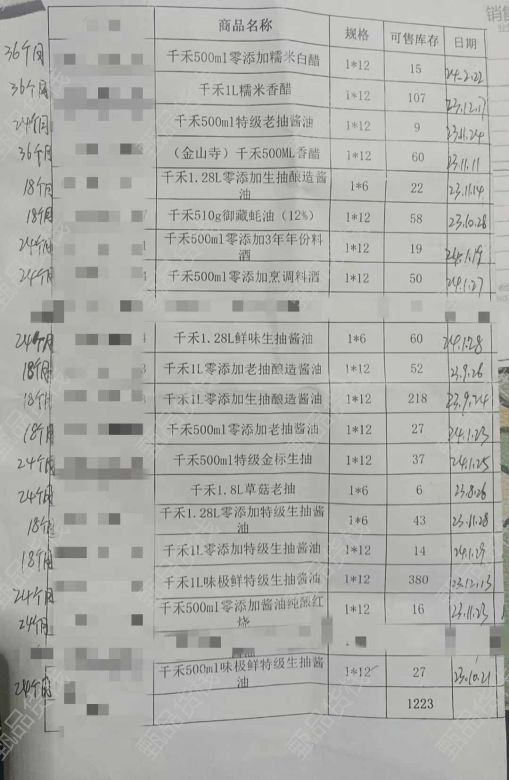 销售
商品名称 规格 可售库存 日期
36个月 千禾500ml零添加糯米白醋 1*12 15 24.2.22
36个月 千禾1L糯米香醋 1*12 107 23.12.17
24个月 千禾500ml特级老抽酱油 1*12 9 23.11.24
36个月 （金山寺）千禾500ML香醋 1*12 60 23.11.11
18个月 千禾1.28L零添加生抽酿造酱油 1*6 22 23.11.14
18个月 千禾510g御藏蚝油（12%） 1*12 58 23.10.28
24个月 千禾500ml零添加3年年份料酒 1*12 19 24.1.19
24个月 千禾500ml零添加烹调料酒 1*12 50 24.1.27
24个月 千禾1.28L鲜味生抽酱油 1*6 60 24.1.28
18个月 千禾1L零添加老抽酿造酱油 1*12 52 23.9.26
18个月 千禾1L零添加生抽酿造酱油 1*12 218 23.9.24
18个月 千禾500ml零添加老抽酱油 1*12 27 24.1.23
24个月 千禾500ml特级金标生抽 1*12 37 24.1.25
24个月 千禾1.8L草菇老抽 1*6 6 23.8.26
18个月 千禾1.28L零添加特级生抽酱油 1*6 43 23.11.28
18个月 千禾1L零添加特级生抽酱油 1*12 14 24.1.29
24个月 千禾1L味极鲜特级生抽酱油 1*12 380 23.12.13
24个月 千禾500ml零添加酱油纯酿红烧 1*12 16 23.11.23
24个月 千禾500ml味极鲜特级生抽酱油 1*12 27 23.10.21
1223